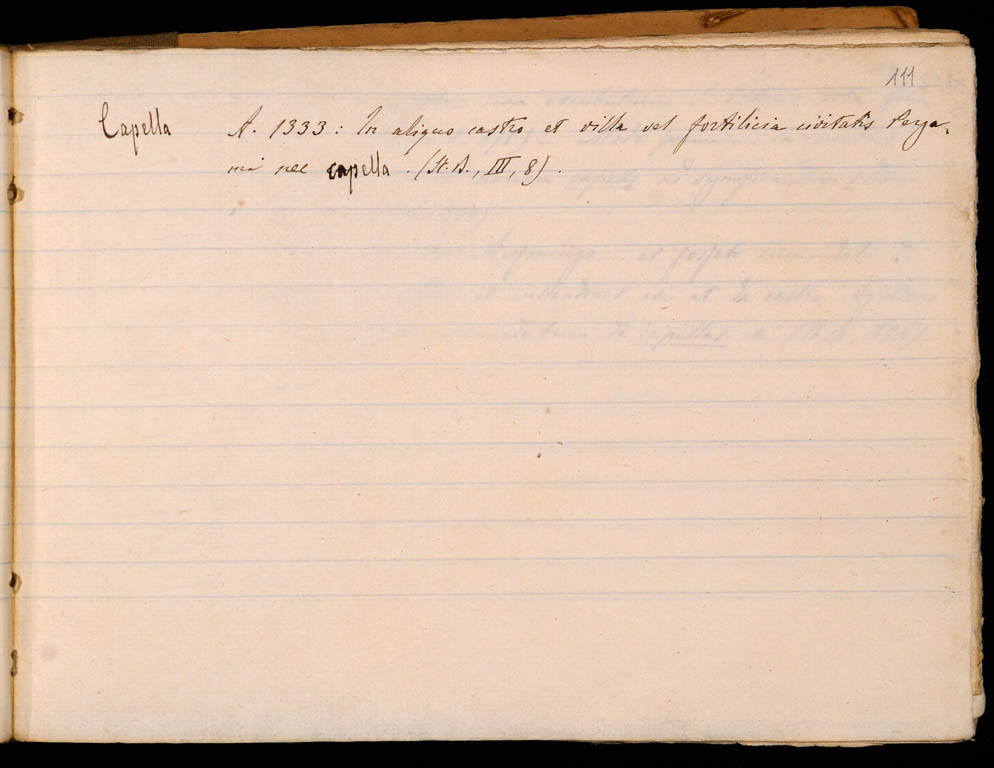 111
Capella A. 1333: In aliquo castro et villa vel fortilicia civitatis Perga-
mi nec capella. (St. B., III, 8).